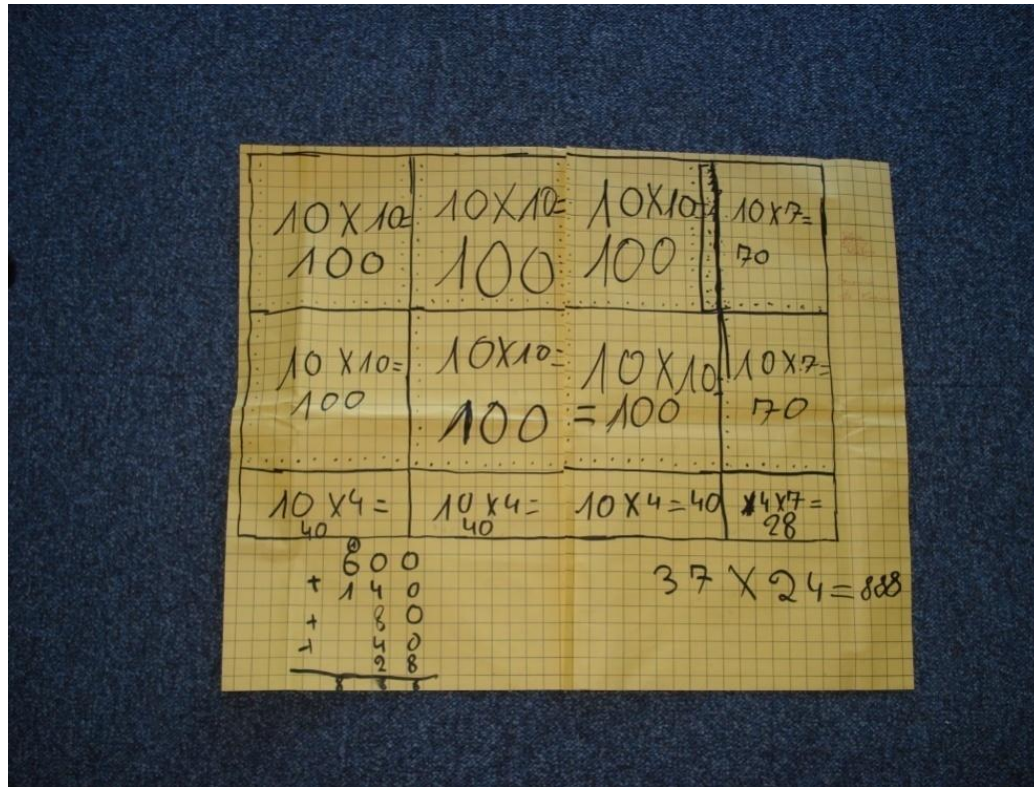 10 X 10=
100
10 X 10=
100
10 X 10=
100
10 X 7=
70
10 X 10=
100
10 X 10=
100
10 X 10
= 100
10 X 7=
70
10 X 4=
40
10 X 4=
40
10 X 4=40
4 X 7=
28
600
+ 140
+ 80
+ 40
28
888
37 X 24=888